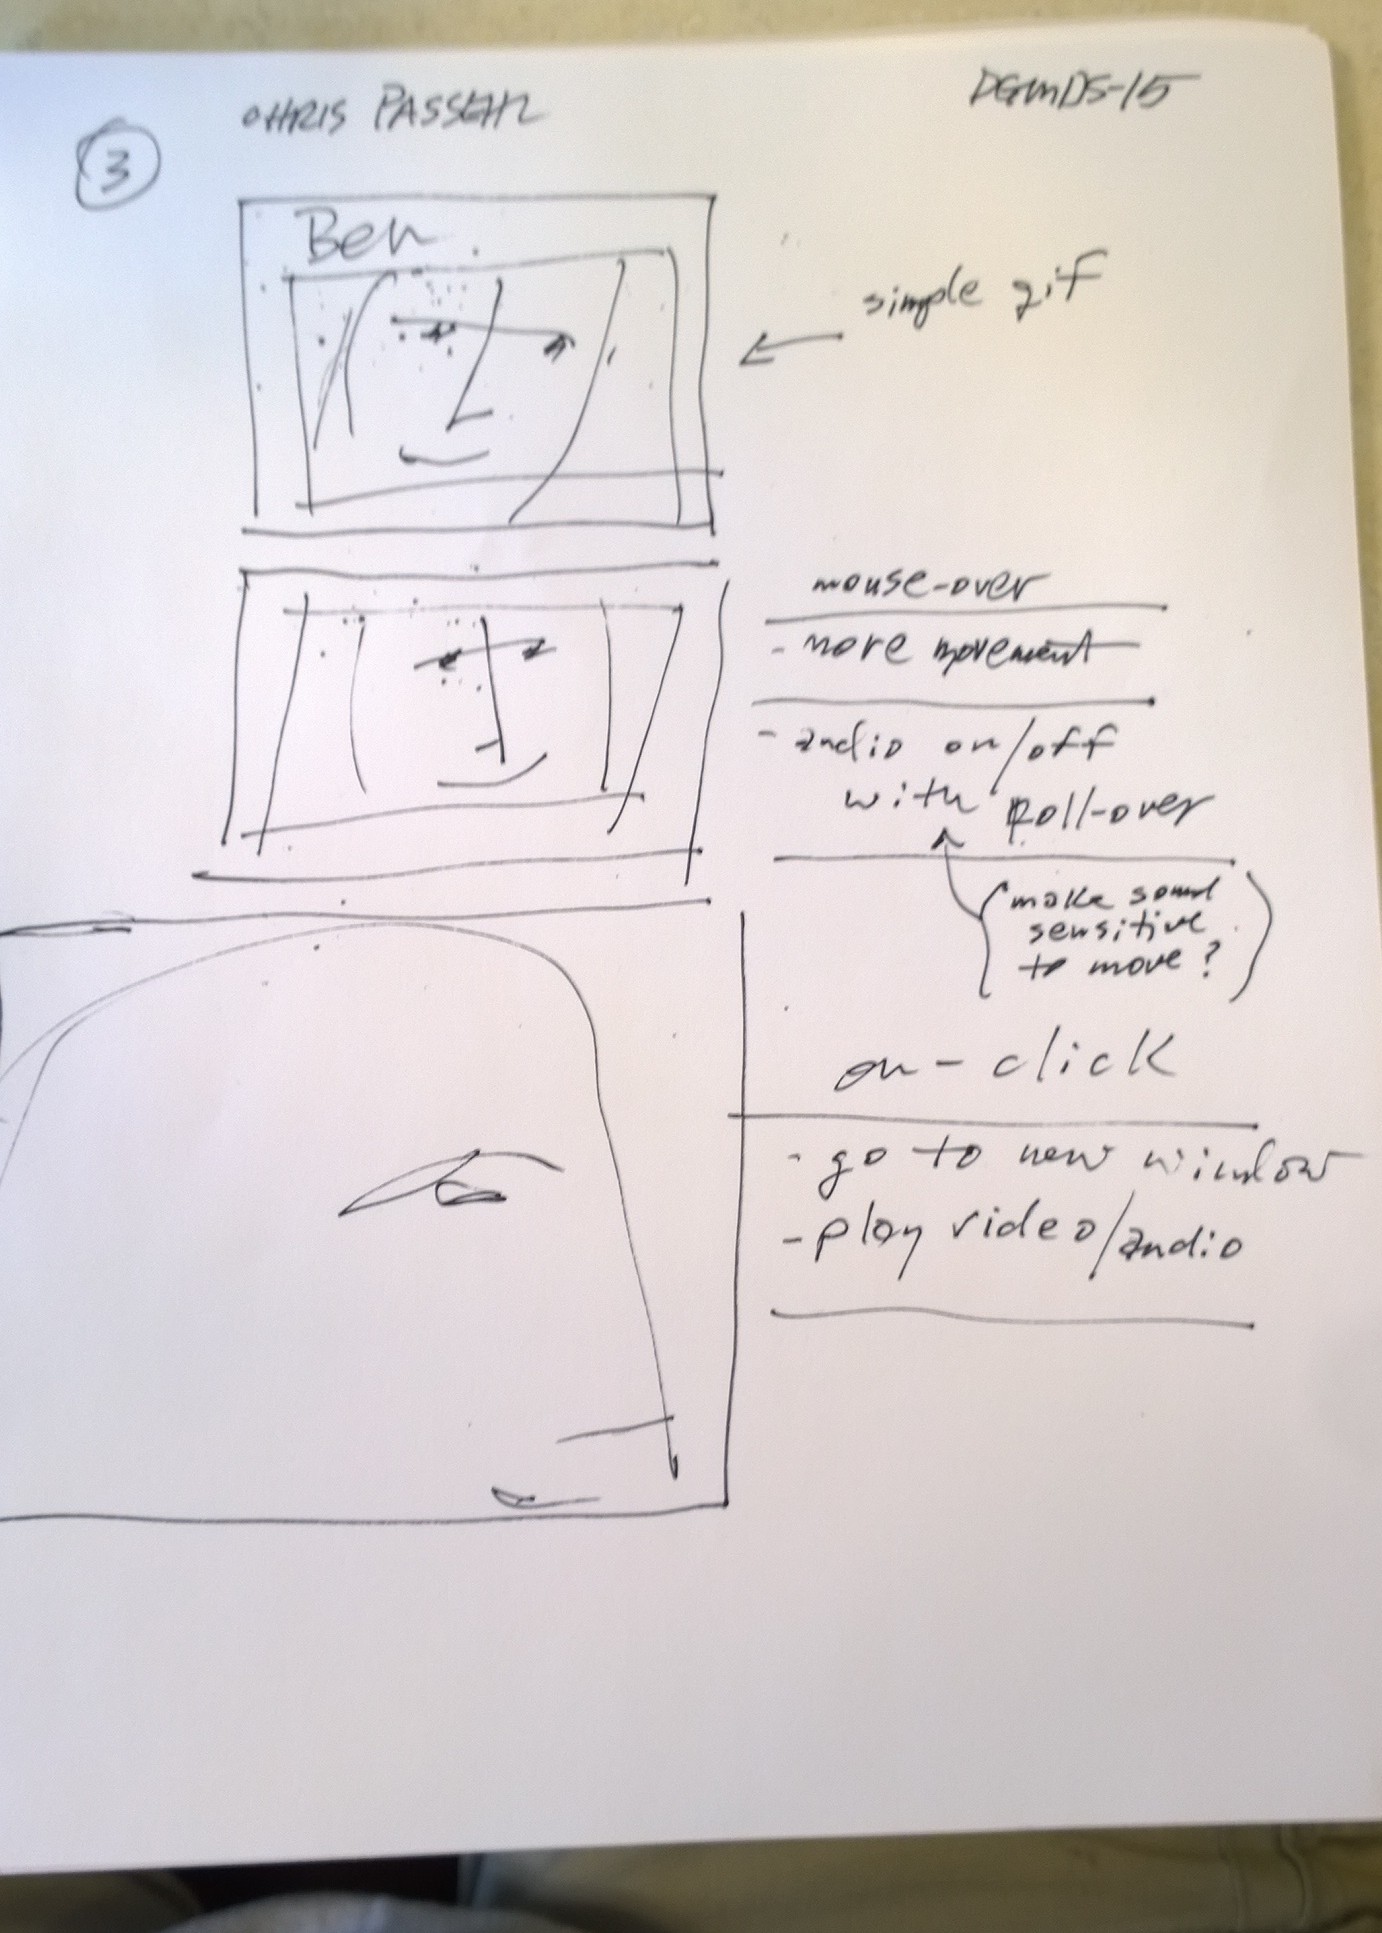 CHRIS PASSEHL
DGMDS-15
3
Ben
simple gif
mouse-over
- more movement
- audio on/off
with Roll-over
(make sound
sensitive
to move?)
on-click
- go to new window
- play video/audio